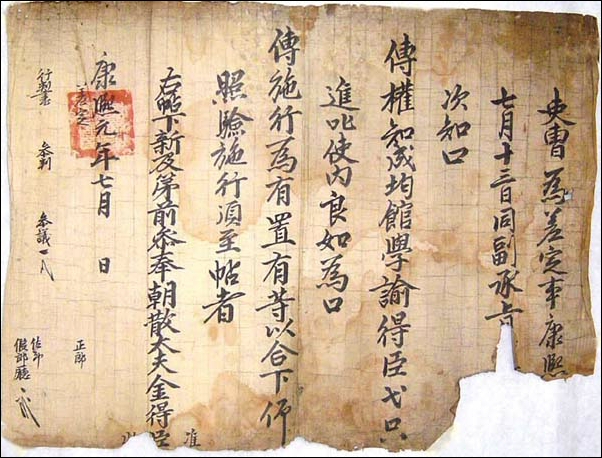 吏曹爲差定事康熙
七月十三日同副承旨
次知口
傳權知成均館學諭得臣戈只
進叱使內良如爲口
傳施行爲有置有等以合下仰
照驗施行須至帖者
右帖下新及第前叅奉朝散大夫金得臣 准
康熙元年七月 日
差定
行判書 叅判 叅議
正郎
佐郎
假郎廳